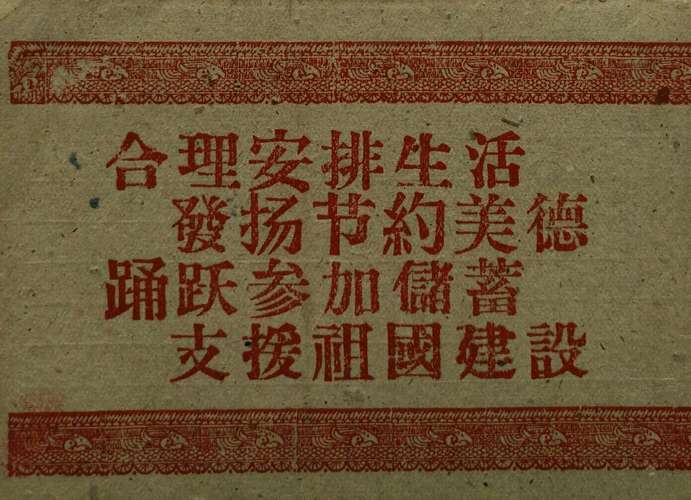 合理安排生活
發扬节約美德
踊跃参加儲蓄
支援祖國建設